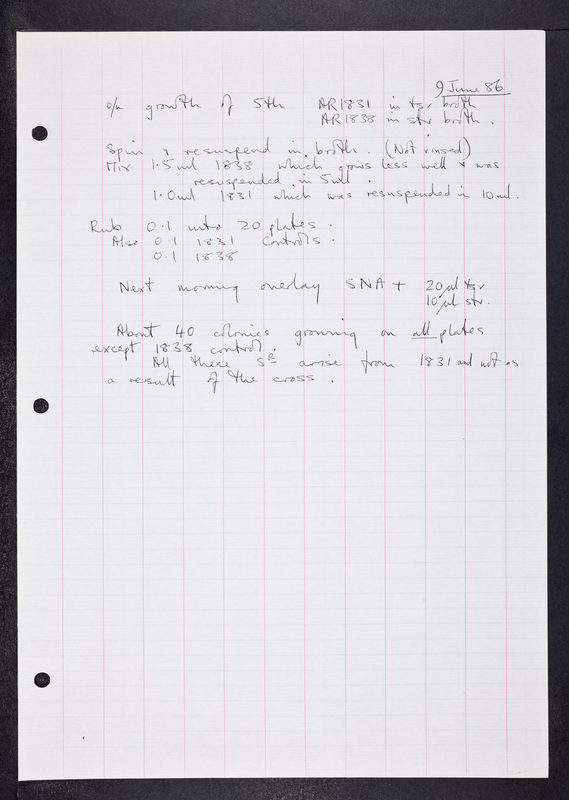 9 June 86
o/n growth of 5th AR1831 in tsr broth
AR1838 in str broth.
Spin & resuspend in broth. (Not rinsed)
Mix 1.5ml 1838 which grows less well & was
resuspended in 5ml.
1.0ml 1831 which was resuspended in 10ml.
Rub 0.1 into 20 plates.
Also 0.1 1831 Controls.
0.1 1838
Next morning overlay SNA + 20µl tsr
10µl str.
About 40 colonies growing on all plates
except 1838 control.
All these Sᴿ arise from 1831 and not as
a result of the cross.